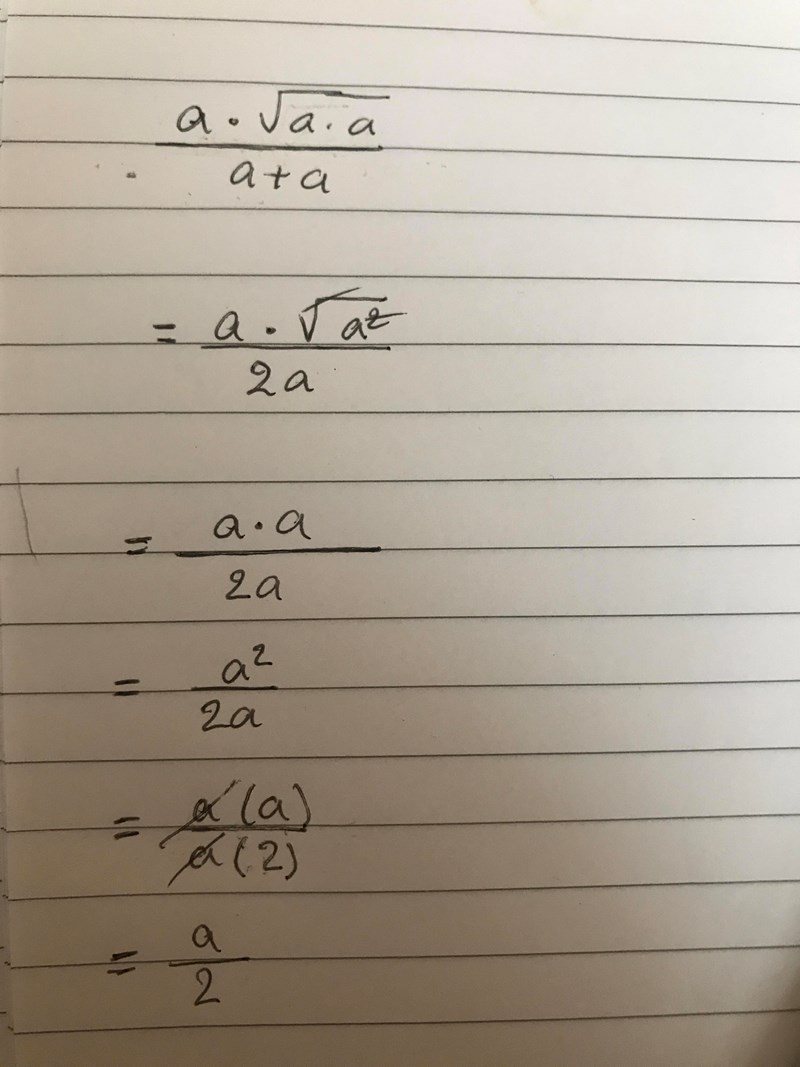 a · √(a · a)
a + a
= a · √a²
2a
= a · a
2a
= a²
2a
= a (a)
a (2)
= a
2